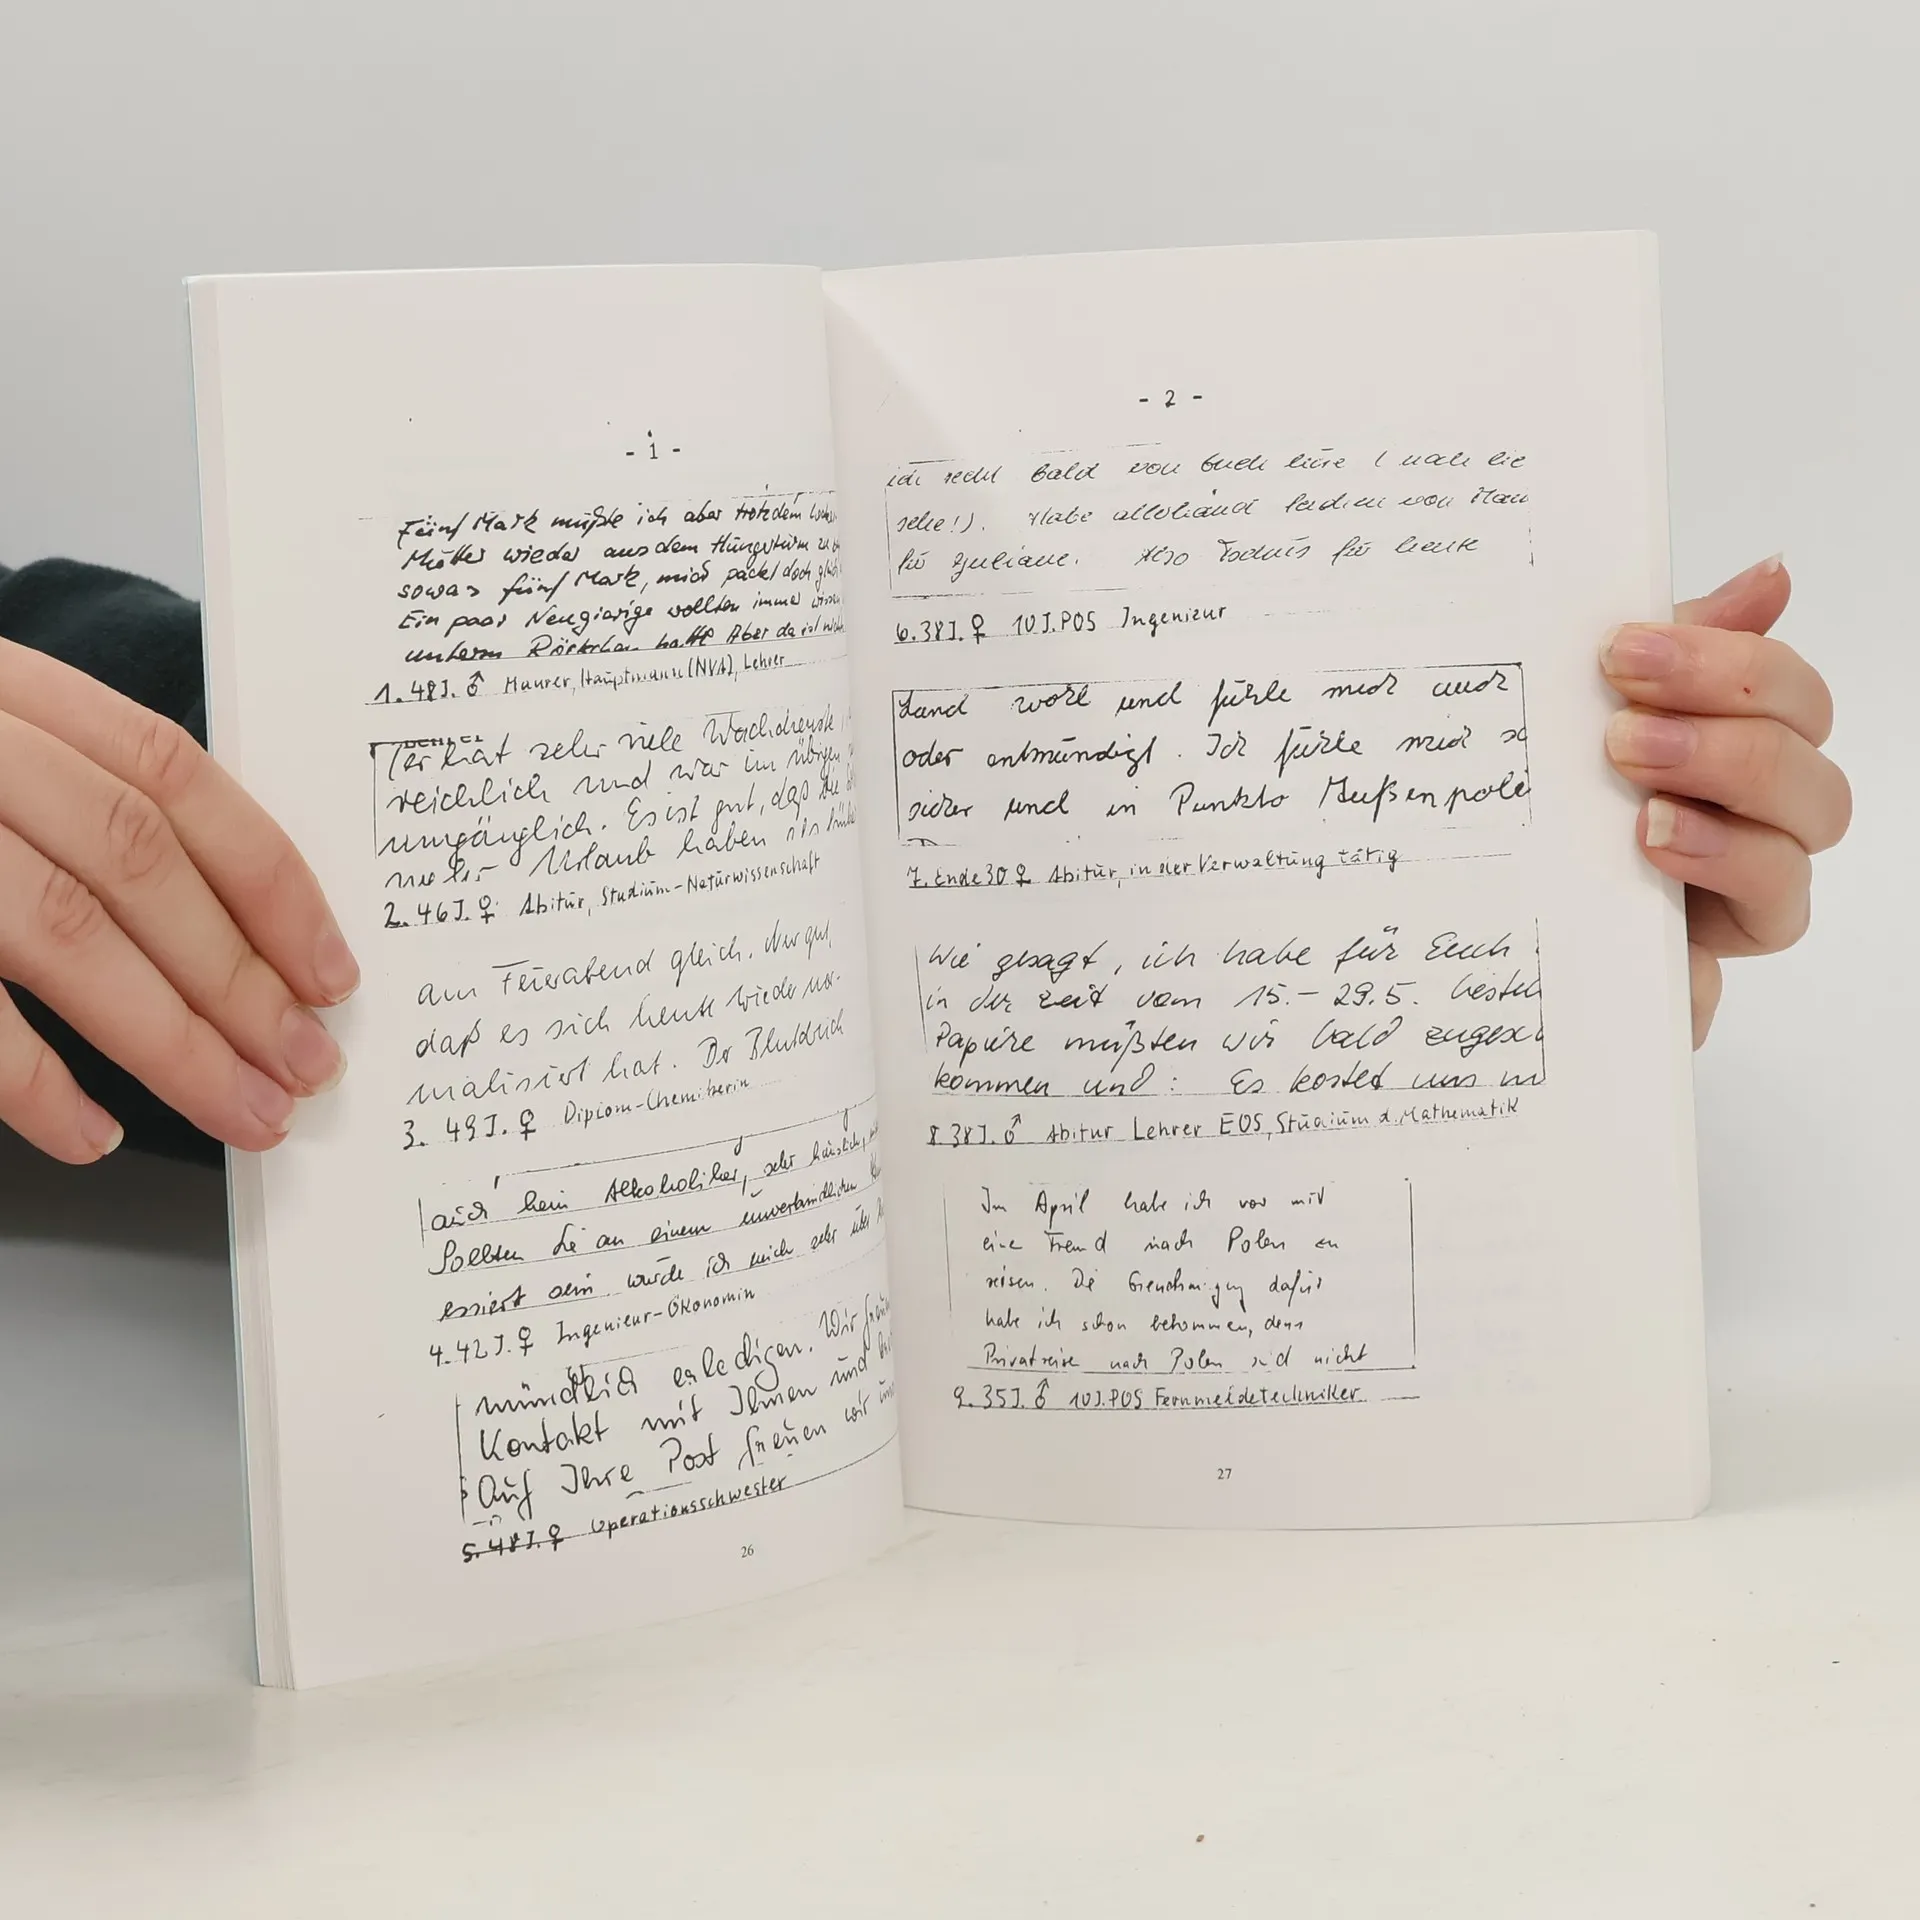 - 1 -
Fünf Mark mußte ich aber trotzdem
Mutter wieder aus dem Hungerturm zu
sowas fünf Mark, mich packt doch
Ein paar Neugierige wollten immer wissen
unterm Röckchen hatte Aber da ist
1. 48J. ♂ Maurer, Hauptmann (NVA), Lehrer
(er hat sehr viele Wachdienste
reichlich und war im übrigen
umgänglich. Es ist gut, daß Sie
mehr Urlaub haben als
2. 46J. ♀ Abitur, Studium-Naturwissenschaft
am Feierabend gleich. Nur gut,
daß es sich heute wieder nor-
malisiert hat. Der Blutdruck
3. 49J. ♀ Diplom-Chemikerin
auch kein Alkoholiker, sehr häuslich,
Sollten Sie an einem unverbindlichen
essiert sein würde ich mich sehr über
4. 42J. ♀ Ingenieur-Ökonomin
mündlich erledigen. Wir freuen
Kontakt mit Ihnen und
Auf Ihre Post freuen wir uns
5. 48J. ♀ Operationsschwester
26
- 2 -
ich recht bald von Euch höre ( nach
sehe!). Habe allerhand Sachen von
für Juliane. Also Tschüs für heute
6. 38J. ♀ 10J.POS Ingenieur
Land wohl und fühle mich auch
oder entmündigt. Ich fühle mich so
sicher und in Punkto Außenpoli
7. Ende 30 ♀ Abitur, in der Verwaltung tätig
Wie gesagt, ich habe für Euch
in der Zeit vom 15.- 29.5. bestell
Papiere müßten wir bald zugesch
kommen und: Es kostet uns
8. 38J. ♂ Abitur Lehrer EOS, Studium d. Mathematik
Im April habe ich vor mit
eine Freund nach Polen zu
reisen. Die Genehmigung dafür
habe ich schon bekommen, denn
Privatreise nach Polen sind nicht
9. 35J. ♂ 10J.POS Fernmeldetechniker
27